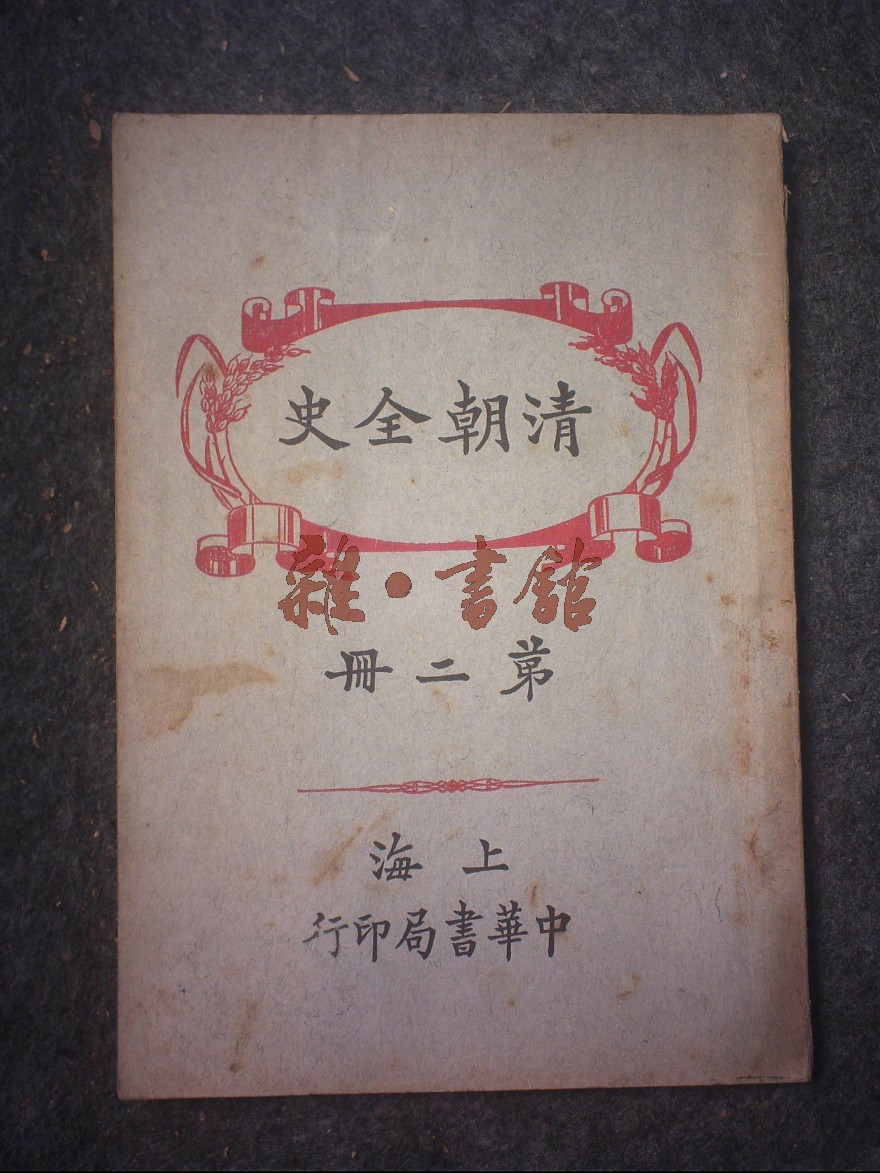 清朝全史
雜·書館
第二冊
上海
中華書局印行